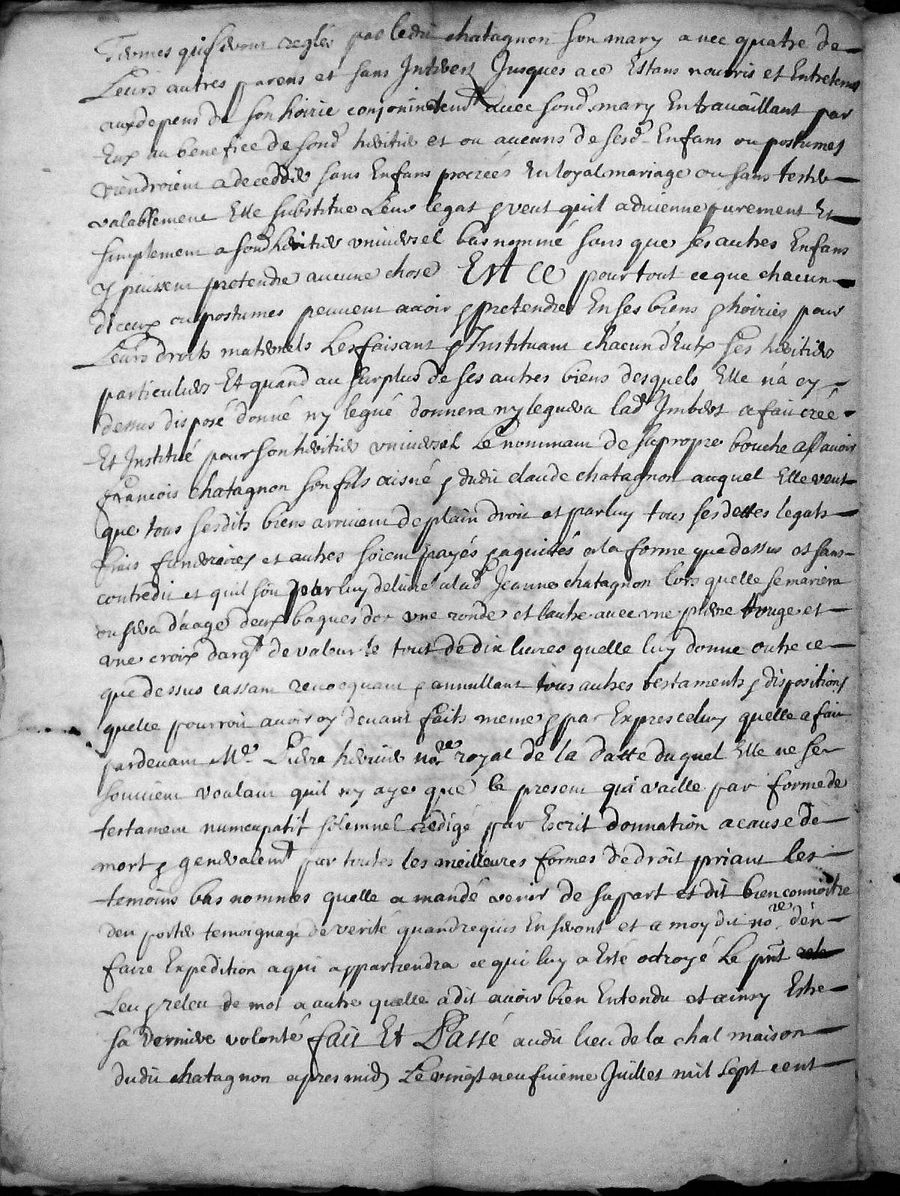 Termes qui seront reglés par ledit chatagnon son mary avec quatre de
Leurs autres parens et sans Interest Jusques a ce Estans nourris et Entretenus
aux depens de son hoirie conjointemt avec sond. mary En travaillant par
Eux au benefice de sond. heritier et ou aucuns de sesd. Enfans ou postumes
viendroient a decedder sans Enfans procréés En loyal mariage ou sans tester
valablement Elle substitue Leur legat & veut quil advienne purement Et
simplement a sond heritier universel bas nommé sans que ses autres Enfans
y puissent pretendre aucune chose Est ce pour tout ce que chacun
diceux ou postumes peuvent avoir & pretendre En ses biens & hoiries pour
Leurs droits maternels Les faisant & Instituant chacun d'Eux ses heritiers
particuliers Et quand au surplus de ses autres biens desquels Elle n'a cy
dessus disposé donné ny legué donnera ny leguera lad. Imbert a fait créé
Et Institué pour son heritier universel Le nommant de sa propre bouche asscavoir
françois chatagnon son fils aisné & dudit claude chatagnon auquel Elle veut
que tous sesdits biens arrivent de plain droit et par luy tous ses dettes legats
frais funeraires et autres soient payés & aquités a la forme que dessus et sans
contredit et quil soit par luy delivré a lad. Jeanne chatagnon lors quelle se mariera
ou sera d'aage deux bagues d'or une ronde et lautre avec une pierre Rouge et
une croix d'argt de valeur le tout de dix livres quelle luy donne outre ce
que dessus cassant revocquant & annullant tous autres testaments & dispositions
quelle pourroit avoir cy devant faits meme & par Expres celuy quelle a fait
pardevant Me. re royal de la datte duquel Elle ne se
souvient voulant quil ny aye que le present qui vaille par forme de
testament nuncupatif solemnel redigé par Escrit donnation a cause de
mort & generalemt par toutes les meilleures formes de droit priant les
temoins bas nommés quelle a mandé venir de sa part et dit bien connoitre
den porter temoignage de verité quand requis En seront et a moy dit nore. d'en
faire Expedition a qui appartiendra ce qui luy a Esté octroyé Le prnt
Leu & releu de mot a autre quelle a dit avoir bien Entendu et ainsy Estre
sa derniere volonté fait Et Passé audit lieu de la chal maison
dudit chatagnon apres midy Le vingt neufvieme Juillet mil sept cent